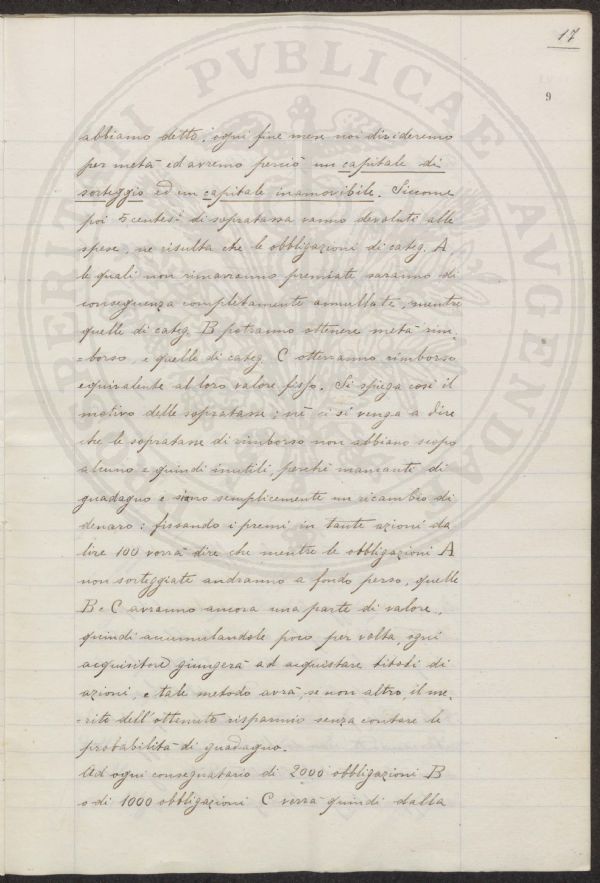 17
9
PROSPERITATI PVBLICAE AVGENDAE
abbiamo detto, ogni fine mese noi divideremo
per metà ed avremo perciò un capitale di
sorteggio ed un capitale inamovibile. Siccome
poi 5 centesi di sopratassa vanno devoluti alle
spese, ne risulta che le obbligazioni di categ. A,
le quali non rimarranno premiate saranno di
conseguenza completamente annullate, mentre
quelle di categ. B potranno ottenere metà rim-
-borso, e quelle di categ. C otterranno rimborso
equivalente al loro valore fisso. Si spiega così il
motivo delle sopratasse; nè ci si venga a dire
che le sopratasse di rimborso non abbiano scopo
alcuno e quindi inutili, perchè mancanti di
guadagno e siano semplicemente un ricambio di
denaro: fissando i premi in tante azioni da
lire 100 vorrà dire che mentre le obbligazioni A
non sorteggiate andranno a fondo perso, quelle
B e C avranno ancora una parte di valore,
quindi accumulandole poco per volta, ogni
acquisitore giungerà ad acquistare titoli di
azioni, e tale metodo avrà, se non altro, il me-
-rito dell'ottenuto risparmio senza contare le
probabilità di guadagno.
Ad ogni consegnatario di 2000 obbligazioni B
o di 1000 obbligazioni C verrà quindi dalla